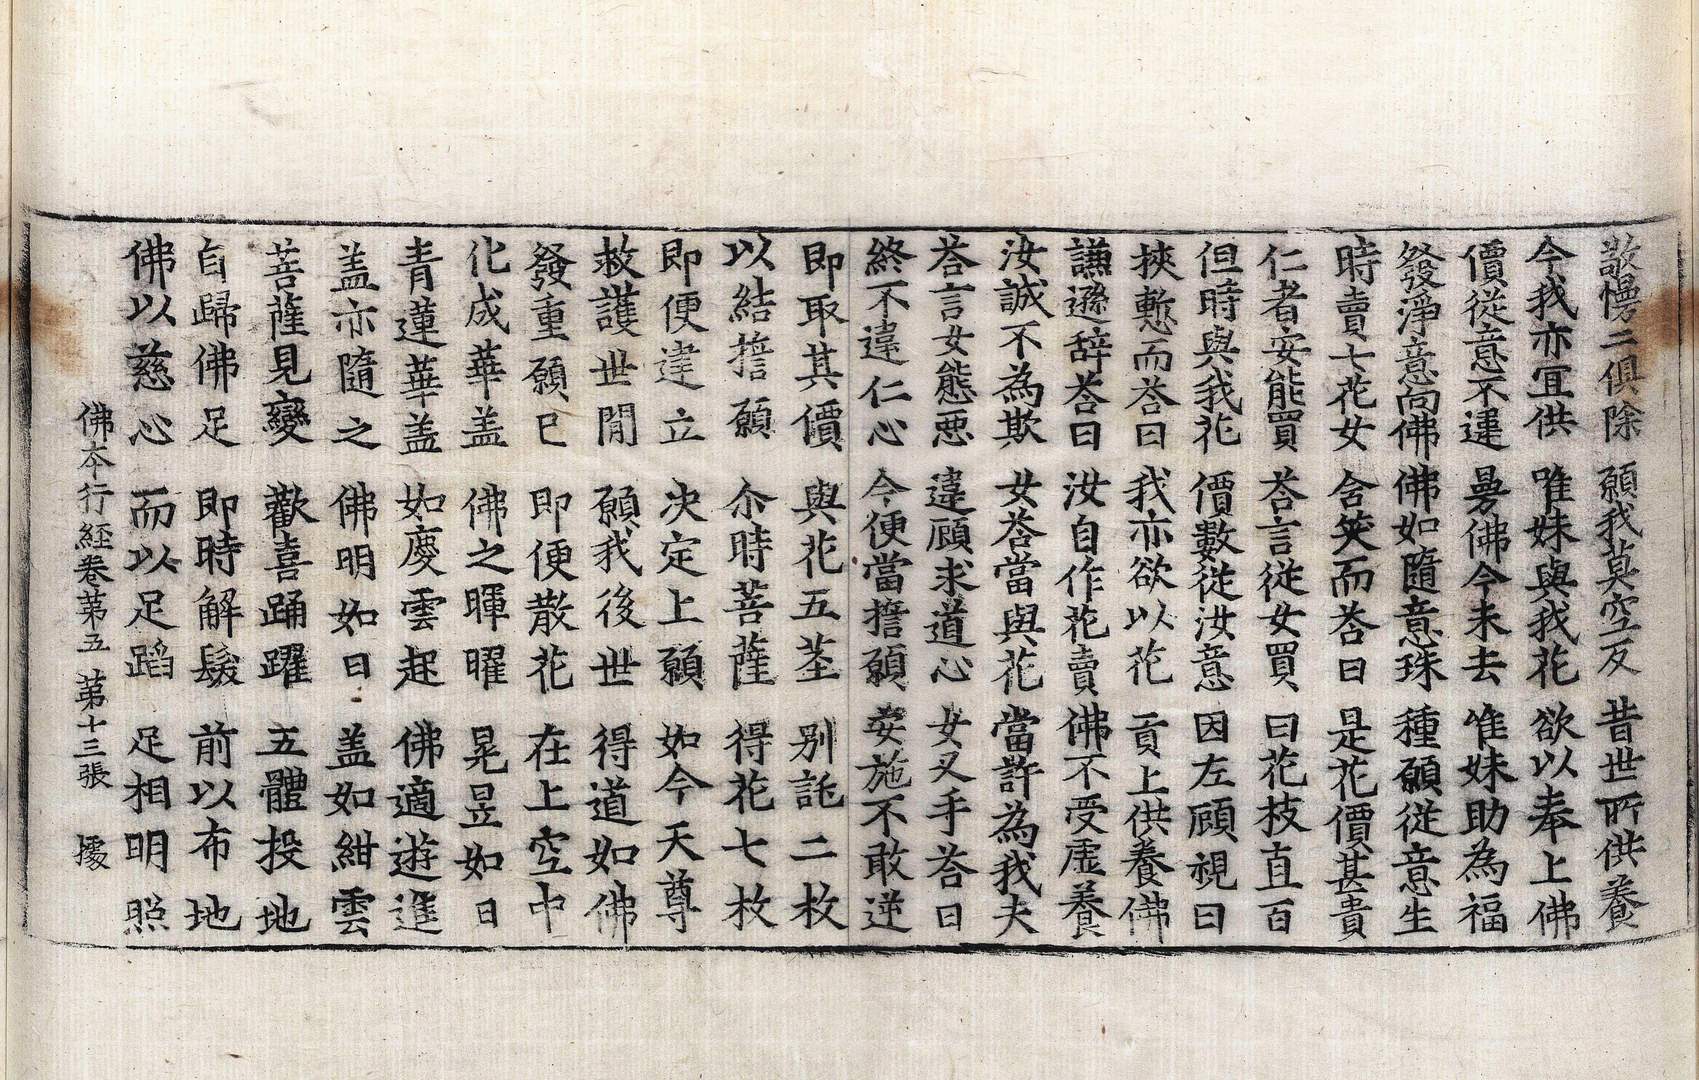 敬慢二俱除　願我莫空反　昔世所供養
今我亦宜供　唯妹與我花　欲以奉上佛
價從意不違　曼佛今未去　唯妹助為福
發淨意向佛　佛如隨意珠　種願從意生
時賣七花女　含笑而荅曰　是花價甚貴
仁者安能買　荅言從女買　曰花枝直百
但時與我花　價數從汝意　因左顧視曰
挾慙而荅曰　我亦欲以花　貢上供養佛
謙遜辞荅曰　汝自作花賣　佛不受虛養
汝誠不為欺　女荅當與花　當許為我夫
荅言女態惡　違願求道心　女叉手荅曰
終不違仁心　今便當擔願　妾施不敢逆
即取其價　與花五莖　別託二枚
以結擔願　尒時菩薩　得花七枚
即便達立　決定上願　如今天尊
救護世間　願我後世　得道如佛
發重願已　即便散花　在上空中
化成華盖　佛之暉曜　晃昱如日
青蓮華盖　如慶雲起　佛適遊進
盖亦隨之　佛明如日　盖如紺雲
菩薩見變　歡喜踊躍　五體投地
自歸佛足　即時解髮　前以布地
佛以慈心　而以足蹈　足相明照
佛本行經卷第五　第十三張　據